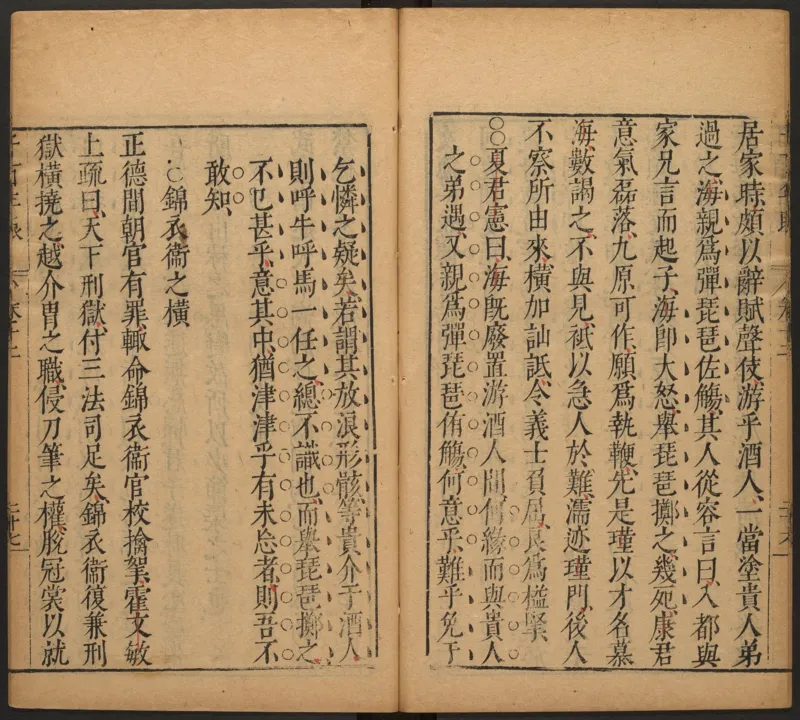 居家時頗以辭賦聲伎游乎酒人一當塗貴人弟
過之海親為彈琵琶佐觴其人從容言曰入都與
家兄言而起子海卽大怒舉琵琶擲之幾死康君
意氣磊落九原可作願為執鞭先是瑾以才名慕
海數謁之不與見祇以急人於難濡迹瑾門後人
不察所由來橫加訕詆令義士負屈良為檻擥
夏君憲曰海旣廢置游酒人間何緣而與貴人
之弟遇又親為彈琵琶侑觴何意乎難乎免于
乞憐之疑矣若謂其放浪形骸等貴介于酒人
則呼牛呼馬一任之總不識也而舉琵琶擲之
不已甚乎意其中猶津津乎有未忘者則吾不
敢知
錦衣衞之橫
正德間朝官有罪輒命錦衣衞官校擒拏霍文敏
上疏曰天下刑獄付三法司足矣錦衣衞復兼刑
獄橫撓之越介冑之職侵刀筆之權脫冠裳以就